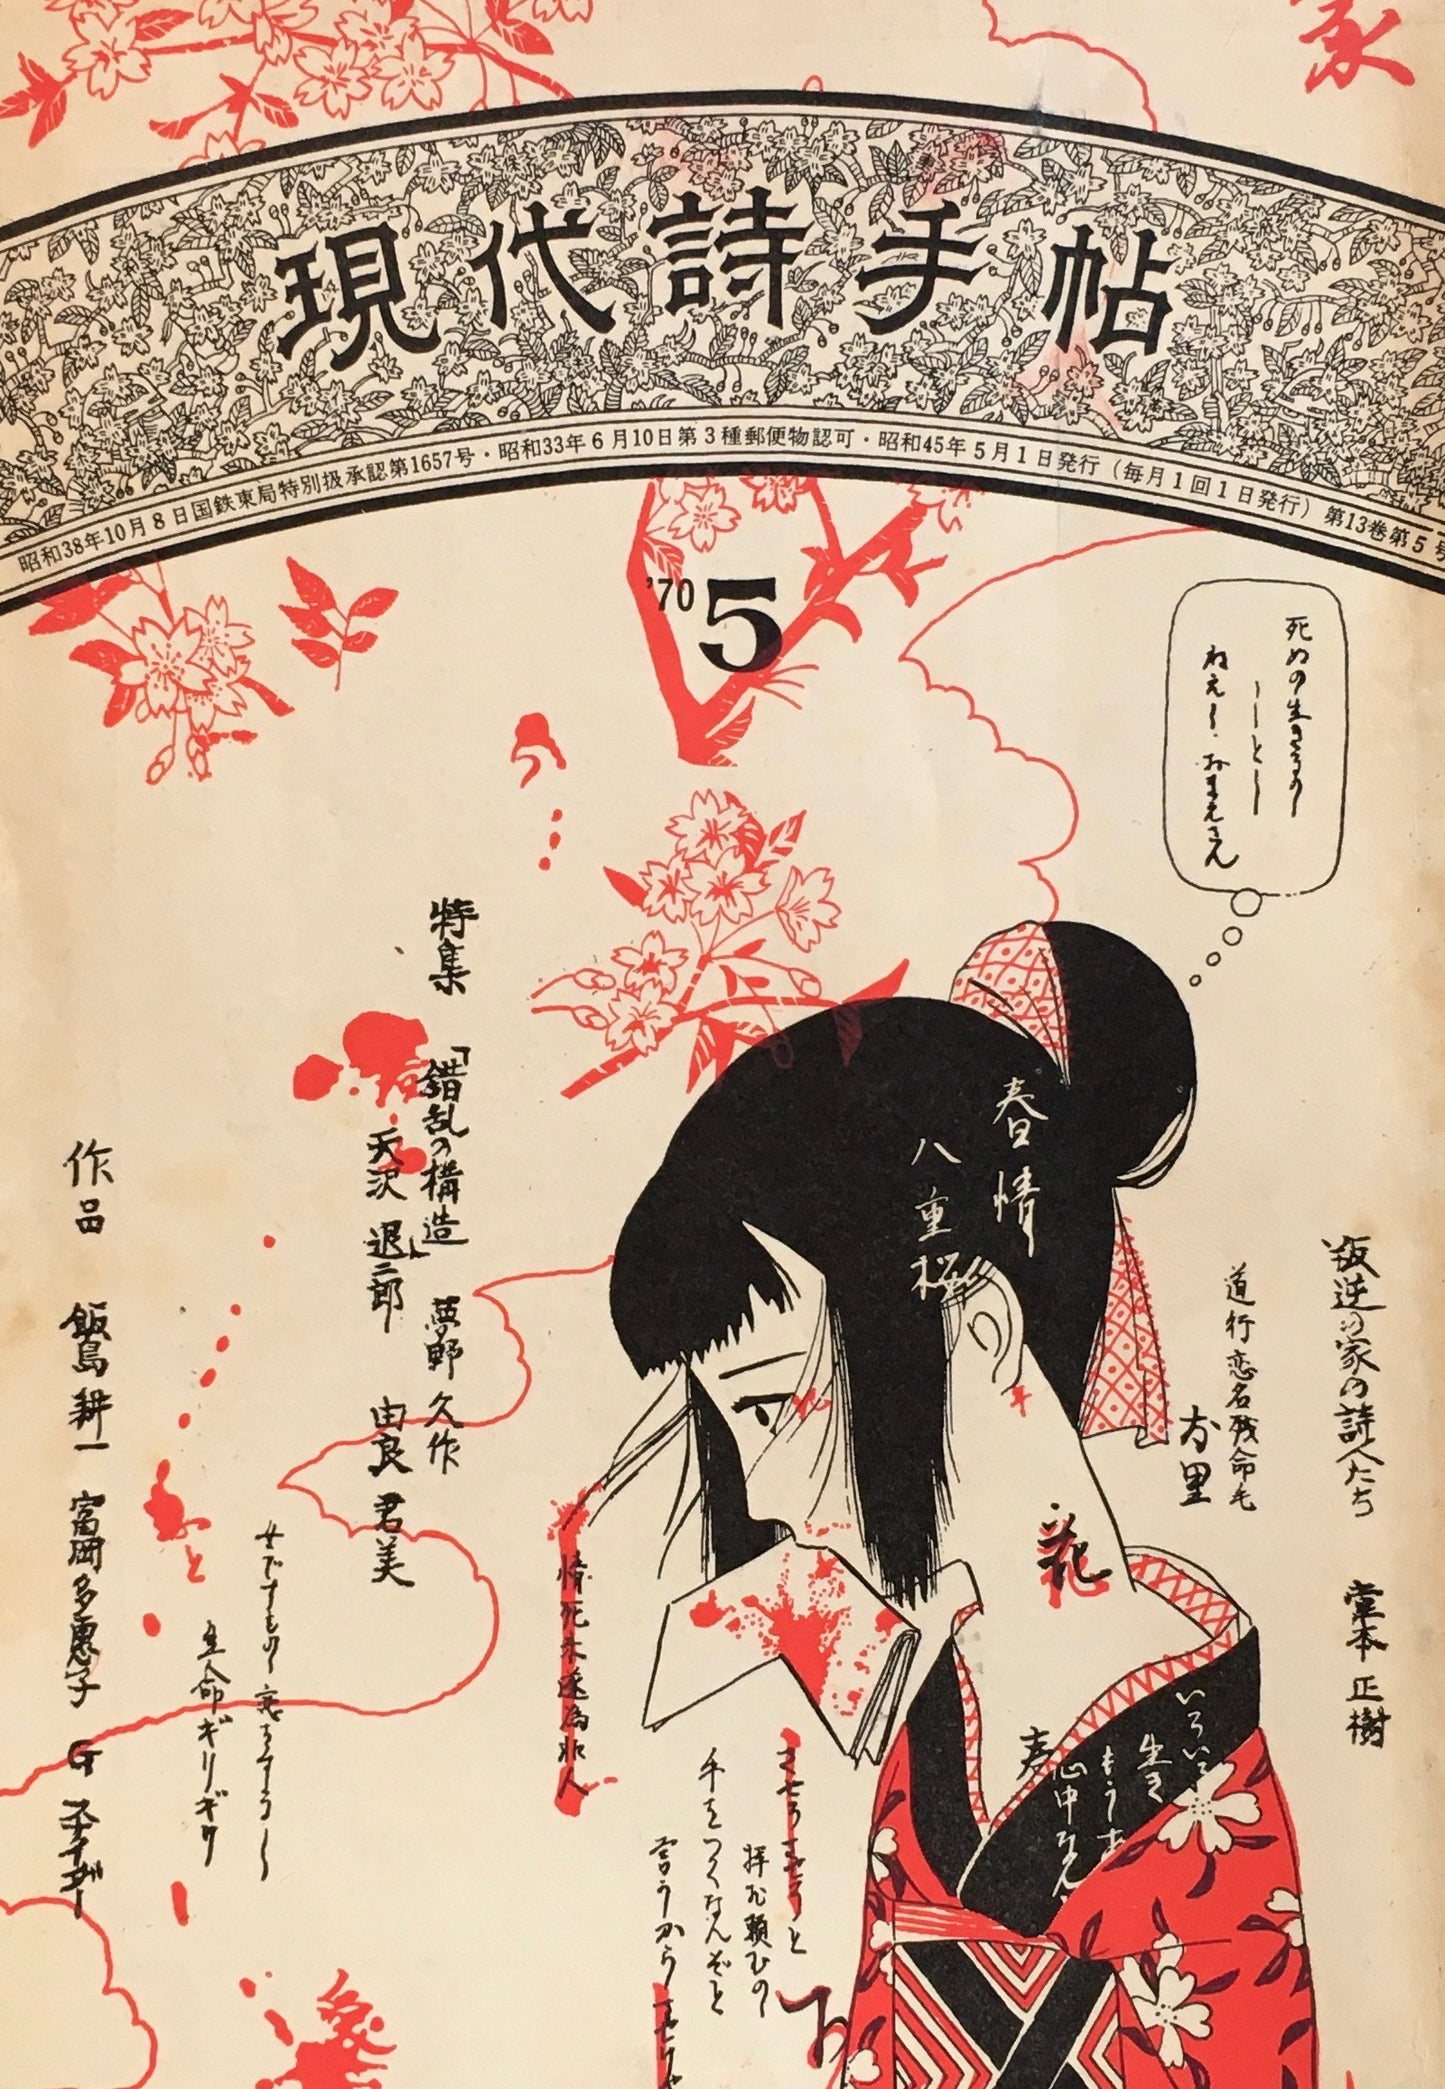 現代詩手帖
昭和38年10月8日国鉄東局特別扱承認第1657号・昭和33年6月10日第3種郵便物認可・昭和45年5月1日発行（毎月1回1日発行）第13巻第5号
'70 5
死ぬの生きるのー
ーーとー
ねえー.おまえさん
叛逆の家の詩人たち　堂本正樹
道行恋名残命毛
お里
春情
八重桜
花
春
いろいろ
生き
心中なん
特集「錯乱の構造」夢野久作
天沢退二郎　由良君美
させうさせうと
拝む頼むの
手をつくなんぞと
言うから
生命ギリギリ
作品　飯島耕一　富岡多恵子